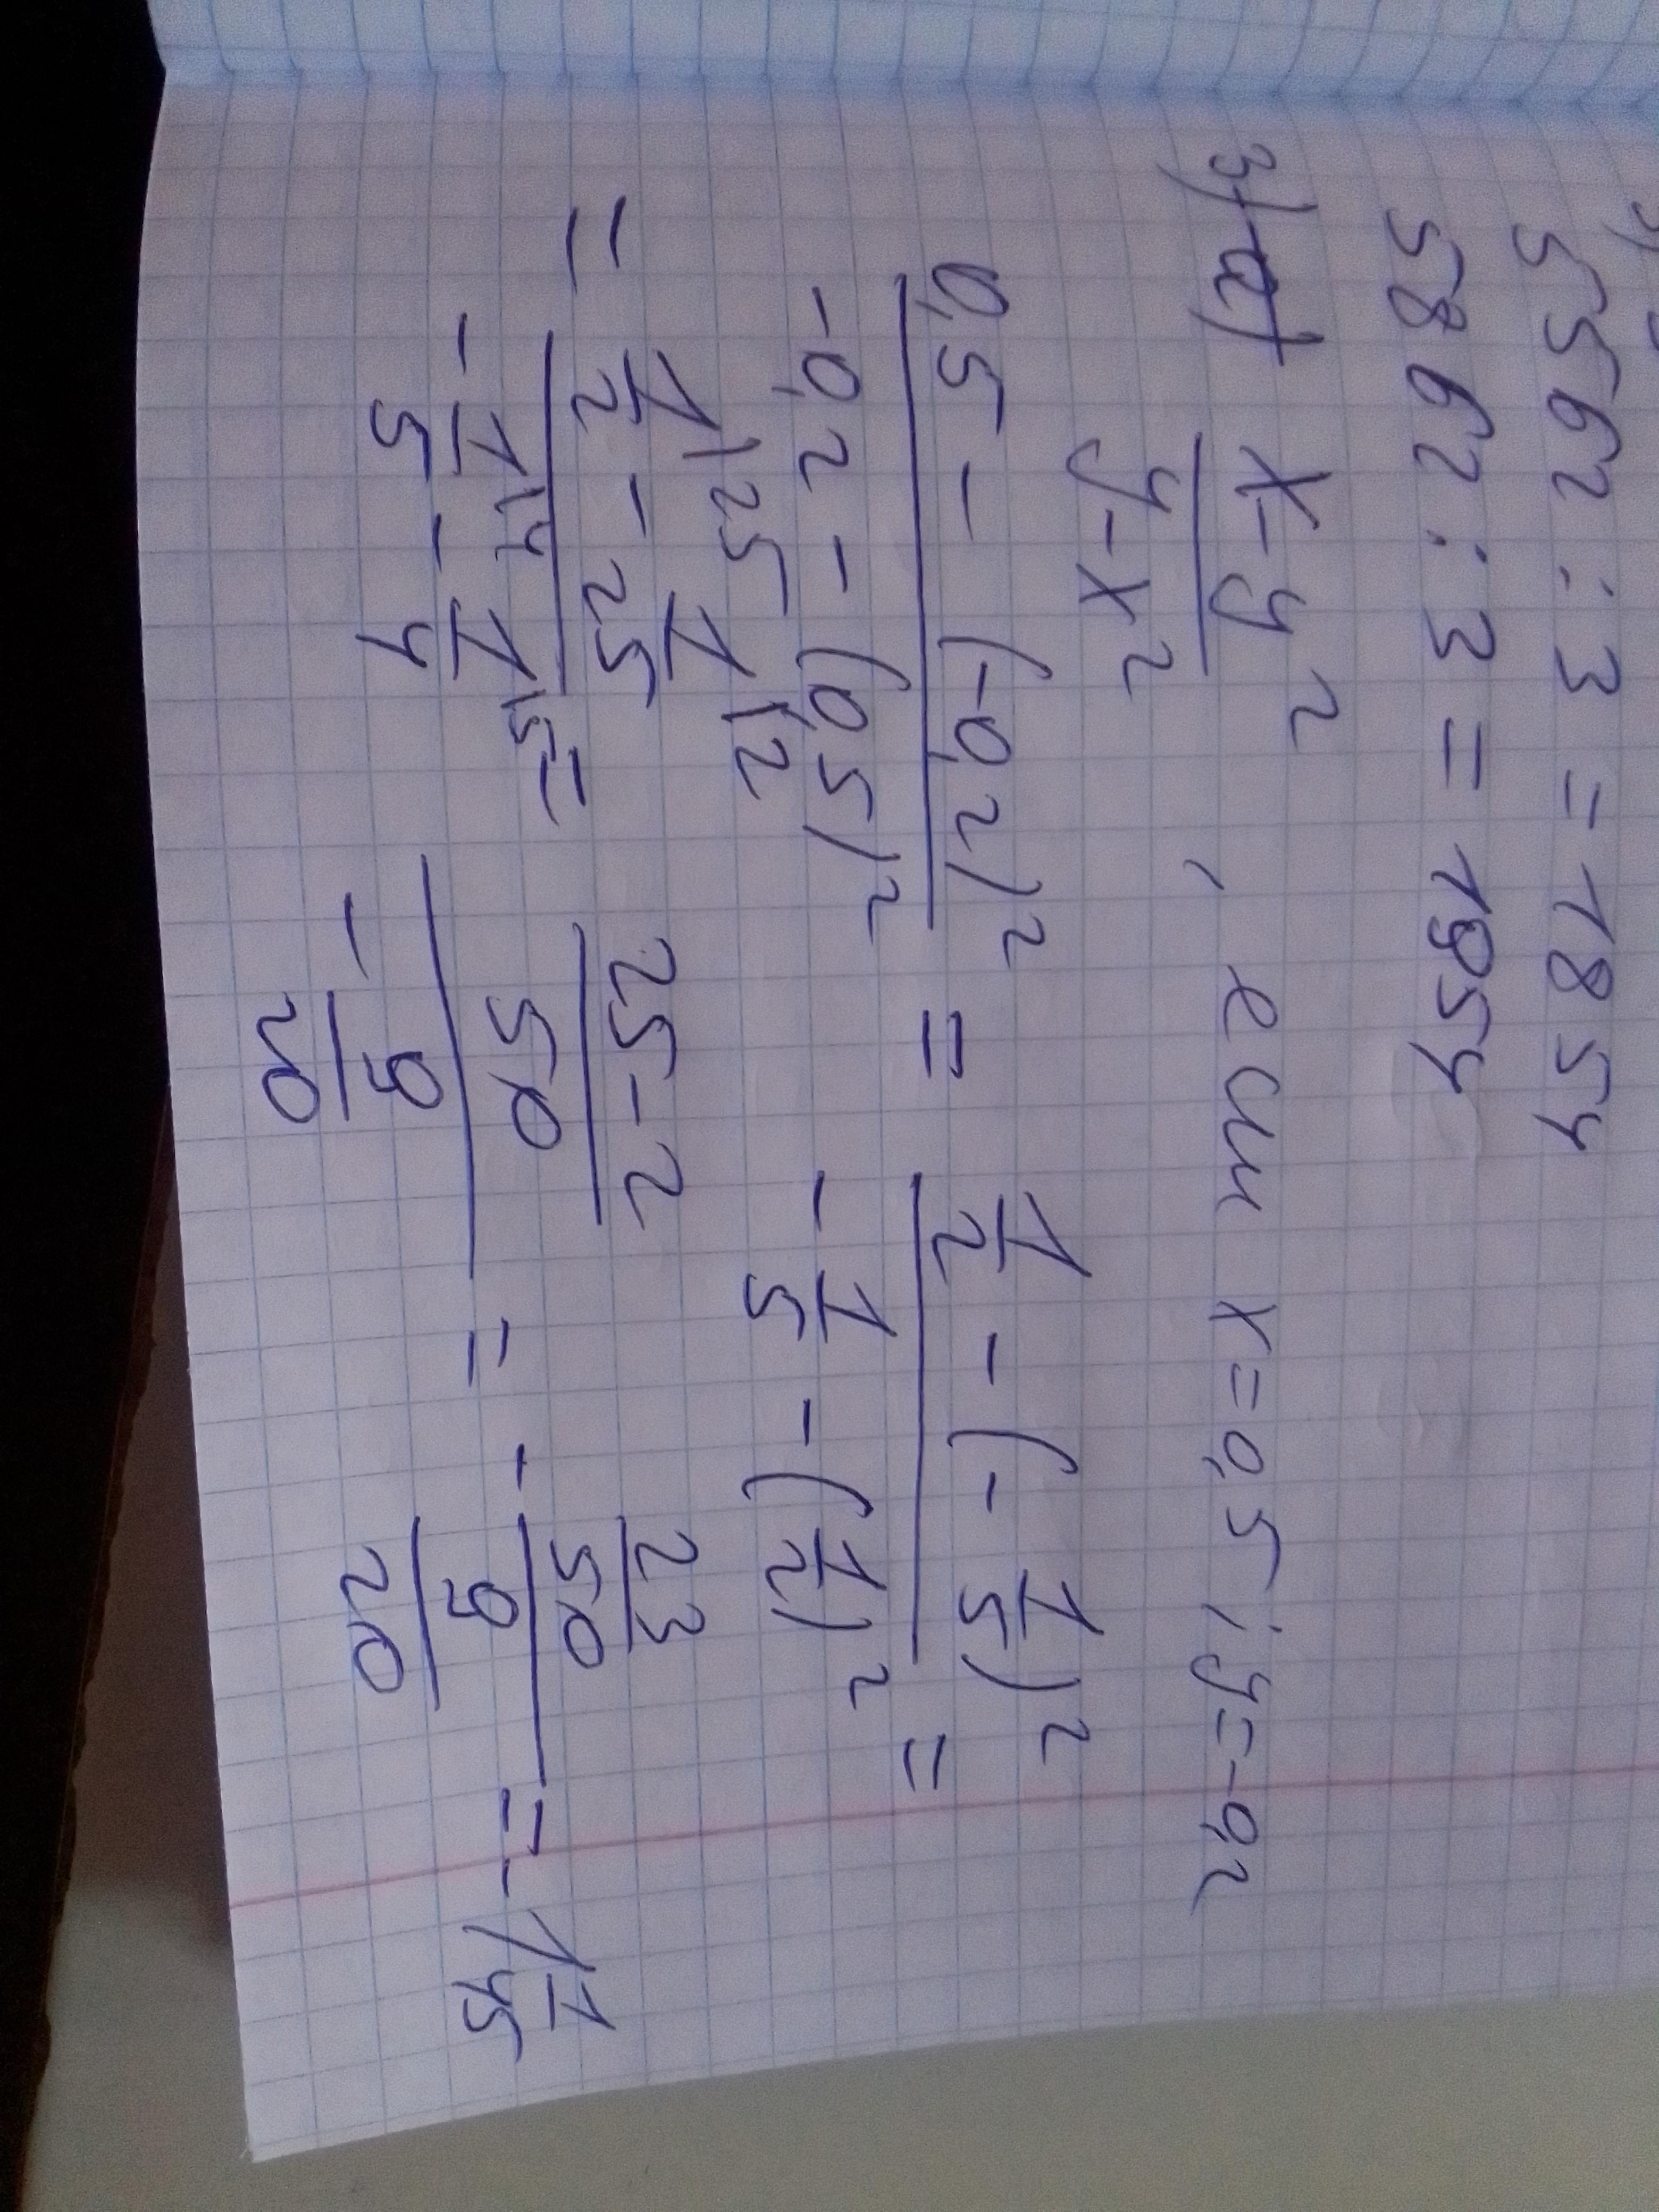 5562 : 3 = 1854
5862 : 3 = 1954
3) a) \frac{x-y^2}{y-x^2}, если x=0,5; y=-0,2
\frac{0,5-(-0,2)^2}{-0,2-(0,5)^2} = \frac{\frac{1}{2}-(-\frac{1}{5})^2}{-\frac{1}{5}-(\frac{1}{2})^2} =
= \frac{\frac{1}{2}^{\backslash 25}-\frac{1}{25}^{\backslash 2}}{-\frac{1}{5}^{\backslash 4}-\frac{1}{4}^{\backslash 5}} = \frac{\frac{25-2}{50}}{-\frac{9}{20}} = -\frac{\frac{23}{50}}{\frac{9}{20}} = -1\frac{1}{45}